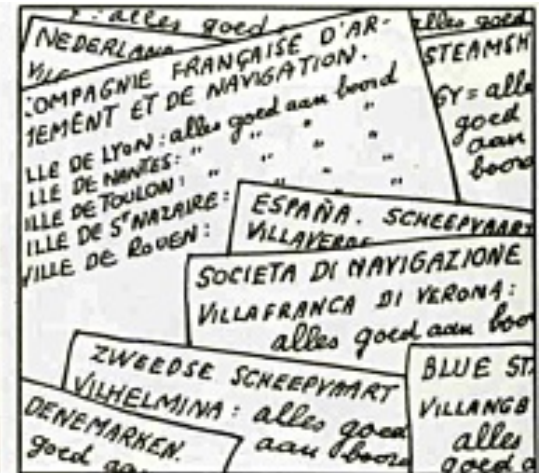 : alles goed
alles goed
NEDERLAN
COMPAGNIE FRANÇAISE D'AR-
MEMENT ET DE NAVIGATION.
LLE DE LYON: alles goed aan boord
LLE DE NANTES: " " " "
ILLE DE TOULON: " " " "
ILLE DE ST NAZAIRE: "
VILLE DE ROUEN:
STEAMSH
GY = alle
goed
aan
boord
ESPAÑA. SCHEEPVAART
VILLAVERDE
SOCIETA DI NAVIGAZIONE
VILLAFRANCA DI VERONA:
alles goed aan boo
ZWEEDSE SCHEEPVAART
VILHELMINA: alles goed
aan boord
BLUE ST
VILLANGB
alles
goed a
DENEMARKEN.
goed aa